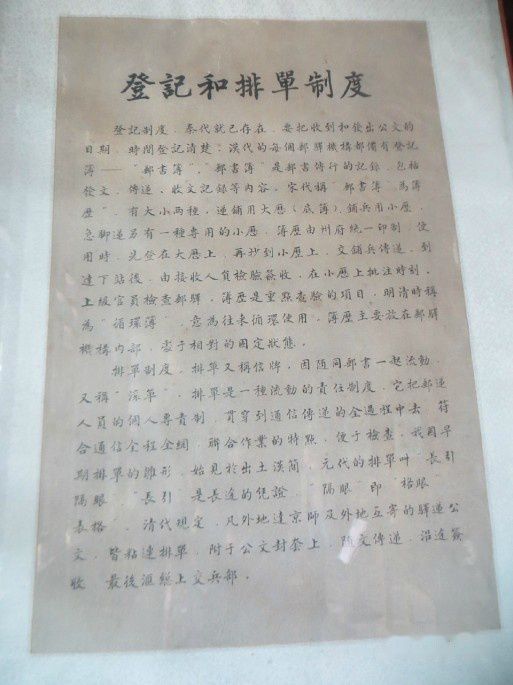 登記和排單制度
登記制度，秦代就已存在，要把收到和發出公文的
日期、時間登記清楚，漢代的每個郵驛機構都備有登記
簿——“郵書簿”，“郵書簿”是郵書傳行的記錄，包括
發文、傳遞、收文記錄等內容，宋代稱“郵書簿”為簿
歷”，有大小兩種，遞鋪用大歷（底簿），鋪兵用小歷，
急腳遞另有一種專用的小歷，簿歷由州府統一印制，使
用時，先登在大歷上，再抄到小歷上，交鋪兵傳遞，到
達下站後，由接收人員檢驗簽收，在小歷上批注時刻，
上級官員檢查郵驛，簿歷是重點查驗的項目，明清時稱
為“循環簿”，意為往來循環使用，簿歷主要放在郵驛
機構內部，處于相對的固定狀態。
排單制度，排單又稱信牌，因隨同郵書一起流動，
又稱“滾單”，排單是一種流動的責任制度，它把郵遞
人員的個人專責制，貫穿到通信傳遞的全過程中去，符
合通信全程全網，聯合作業的特點，便于檢查，我國早
期排單的雛形，始見於出土漢簡，元代的排單叫“長引
隔眼”，“長引”是長途的凭證，“隔眼”即“格眼”
表格，清代規定，凡外地達京師及外地互寄的驛遞公
文，皆粘連排單，附于公文封套上，隨文傳遞，沿途簽
收，最後滙總上交兵部。